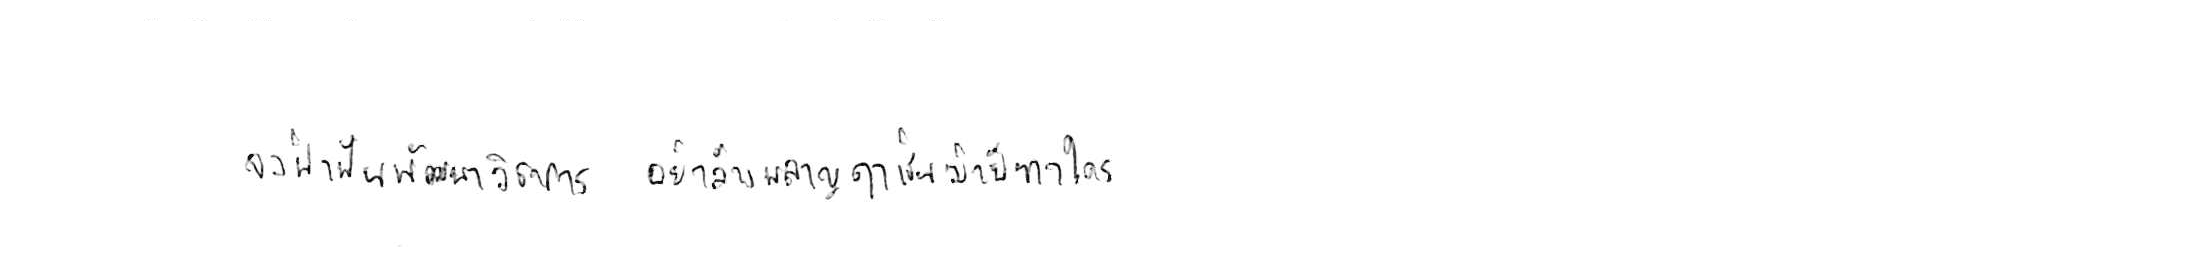 จงฝ่าฟันพัฒนาวิชาการ อย่าล้างผลาญฤาเข่นฆ่าบีฑาใคร